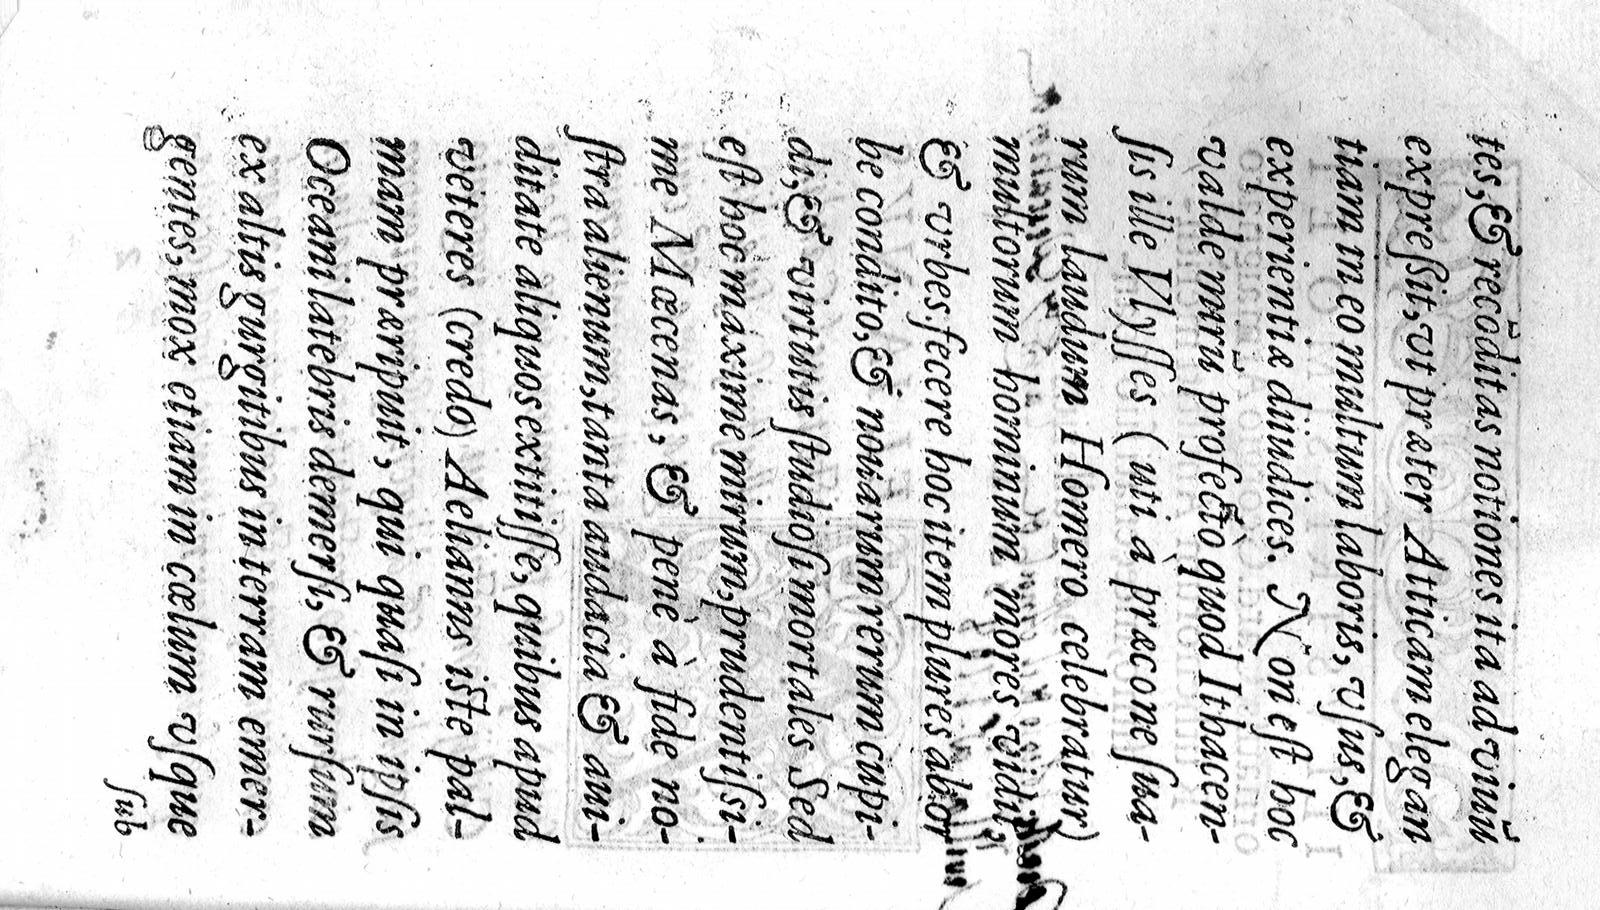 tes, & recõditas notiones ita ad viuũ
expreſſit, vt præter Atticam elegan
tiam in eo multum laboris, vſus, &
experientiæ diiudices. Non eſt hoc
valde mirũ profectò quod Ithacen-
ſis ille Vlyſſes (uti à præcone ſua-
rum laudum Homero celebratur)
multorum hominum mores vidit,
& vrbes: fecere hoc item plures ab or
be condito, & nouarum rerum cupi-
di, & virtutis ſtudioſi mortales Sed
eſt hoc maximè mirum, prudentiſsi-
me Mœcenas, & penè à fide no-
ſtra alienum, tanta audacia & aui-
ditate aliquos extitiſſe, quibus apud
veteres (credo) Aelianus iſte pal-
mam præripuit, qui quaſi in ipſis
Oceani latebris demerſi, & rurſum
ex altis gurgitibus in terram emer-
gentes, mox etiam in cœlum vſque
ſub